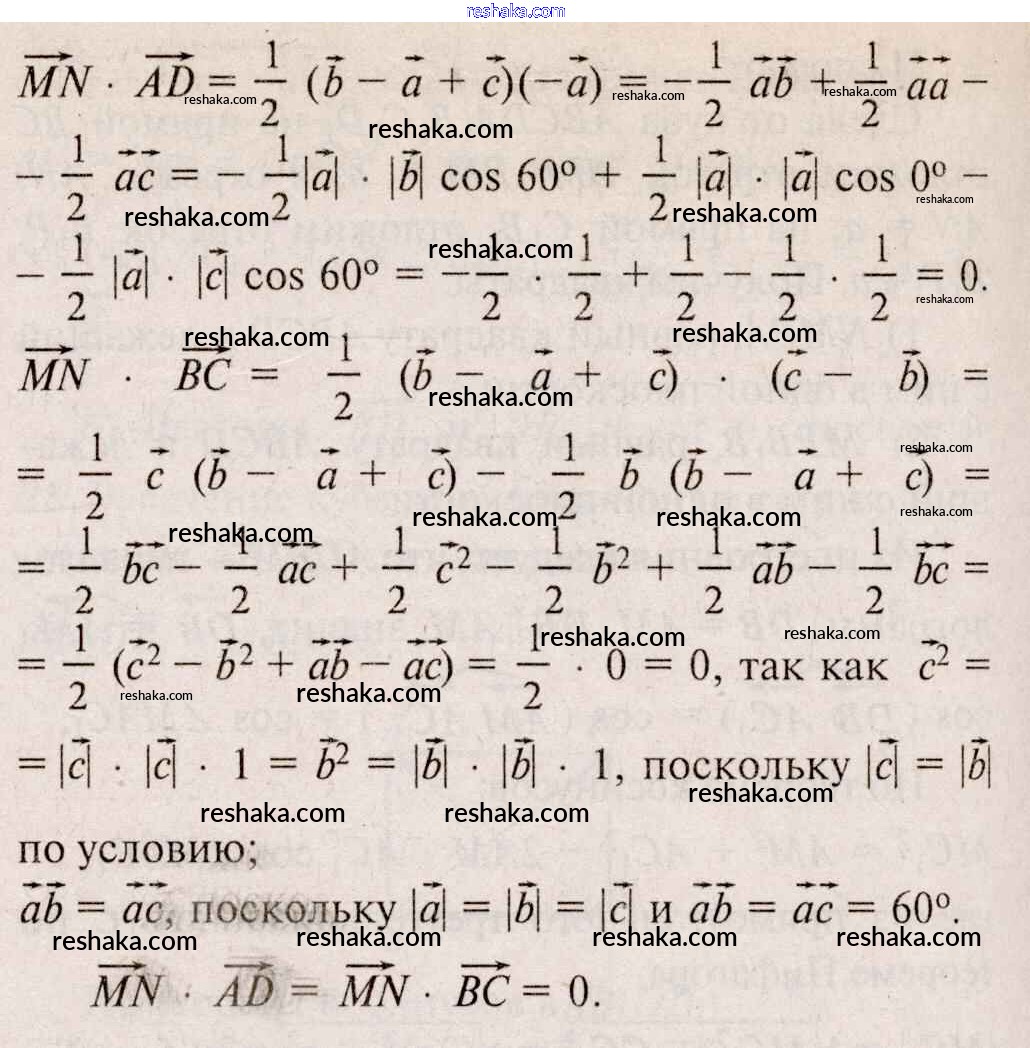 reshaka.com
MN⃗ · AD⃗ = 1/2 (b⃗ − a⃗ + c⃗)(−a⃗) = − 1/2 a⃗b⃗ + 1/2 a⃗a⃗ −
− 1/2 a⃗c⃗ = − 1/2 |a⃗| · |b⃗| cos 60º + 1/2 |a⃗| · |a⃗| cos 0º −
− 1/2 |a⃗| · |c⃗| cos 60º = − 1/2 · 1/2 + 1/2 − 1/2 · 1/2 = 0.
MN⃗ · BC⃗ = 1/2 (b⃗ − a⃗ + c⃗) · (c⃗ − b⃗) =
= 1/2 c⃗ (b⃗ − a⃗ + c⃗) − 1/2 b⃗ (b⃗ − a⃗ + c⃗) =
= 1/2 b⃗c⃗ − 1/2 a⃗c⃗ + 1/2 c⃗² − 1/2 b⃗² + 1/2 a⃗b⃗ − 1/2 b⃗c⃗ =
= 1/2 (c⃗² − b⃗² + a⃗b⃗ − a⃗c⃗) = 1/2 · 0 = 0, так как c⃗² =
= |c⃗| · |c⃗| · 1 = b⃗² = |b⃗| · |b⃗| · 1, поскольку |c⃗| = |b⃗|
по условию;
a⃗b⃗ = a⃗c⃗, поскольку |a⃗| = |b⃗| = |c⃗| и a⃗b⃗ = a⃗c⃗ = 60º.
MN⃗ · AD⃗ = MN⃗ · BC⃗ = 0.